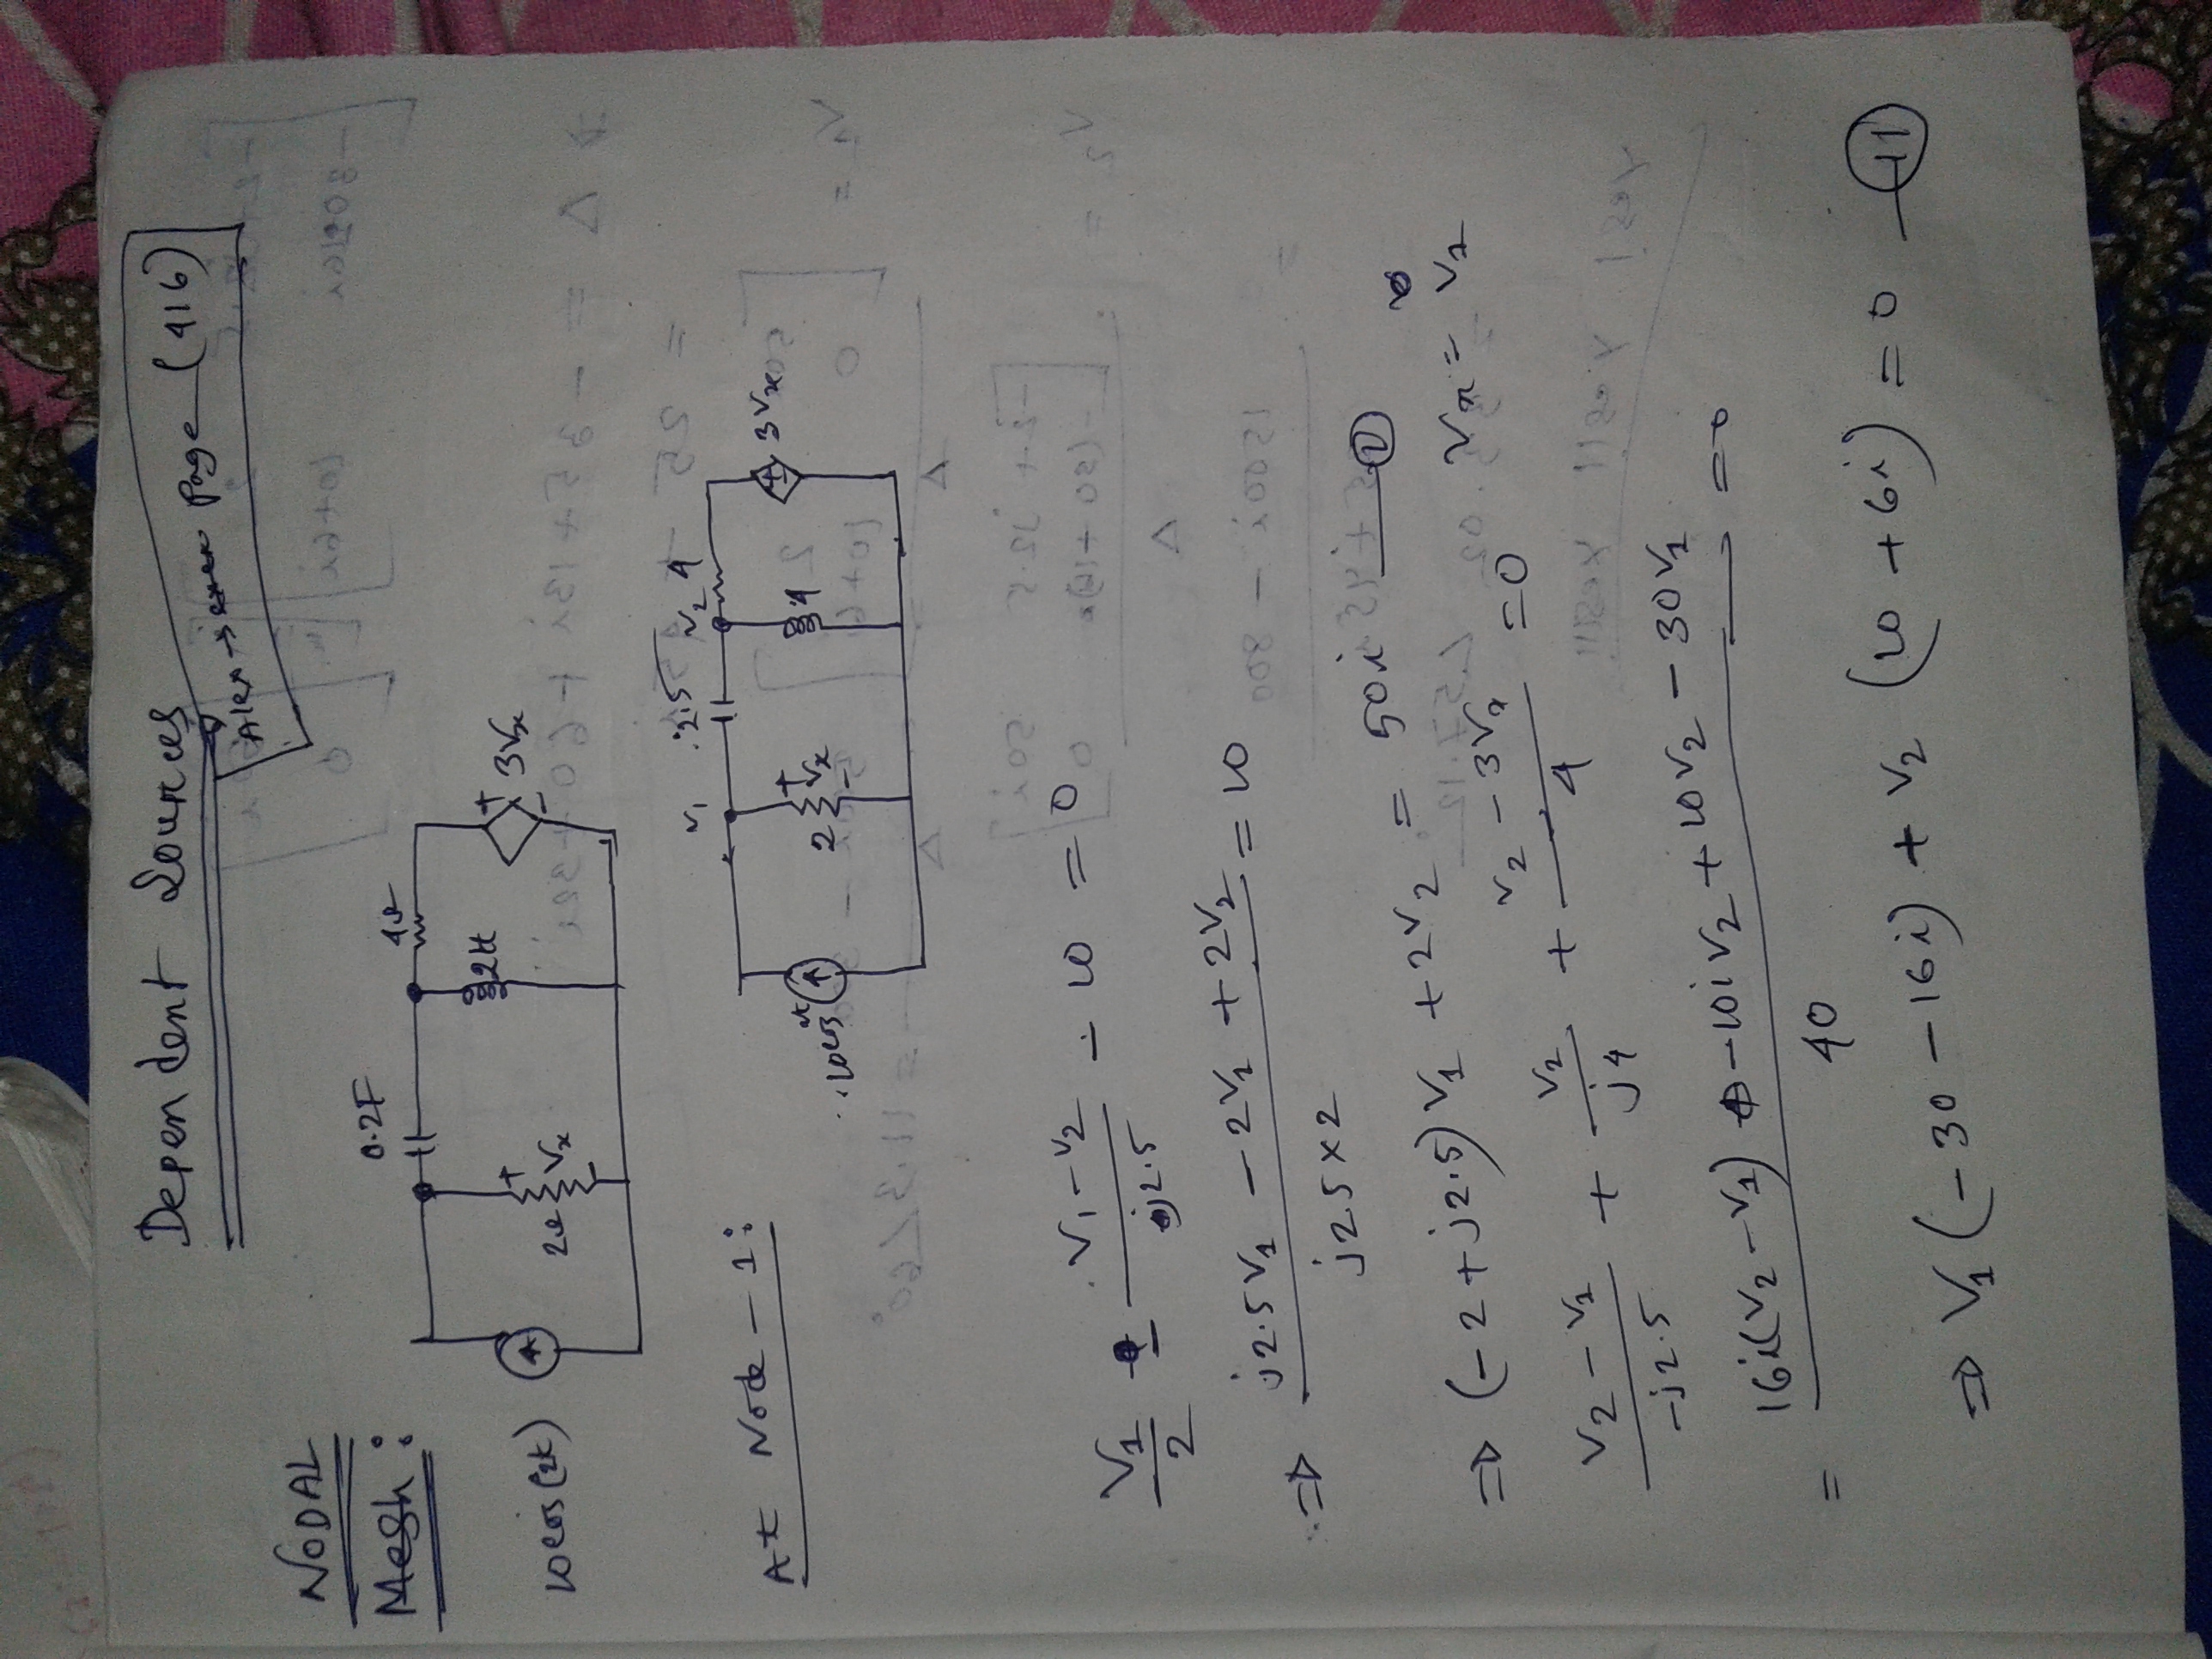 Dependent Sources
Alex → page (416)
NODAL
Mesh :
0.2F
4Ω
10cos(2t)
2Ω
+
Vx
-
2H
+
3Vx
-
At Node - 1:
V1
2.5
V2
4
10cos 2t
2
+
Vx
-
4
3Vx
V1/2 - (V1 - V2)/j2.5 - 10 = 0
⇒ (j2.5V1 - 2V1 + 2V2)/(j2.5×2) = 10
⇒ (-2 + j2.5) V1 + 2V2 = 50i — (I)
Vx = V1
(V2 - V1)/-j2.5 + V2/j4 + (V2 - 3Vx)/4 = 0
= (16i(V2 - V1) - 10iV2 + 10V2 - 30V1)/40 = 0
⇒ V1 (-30 - 16i) + V2 (10 + 6i) = 0 — (II)